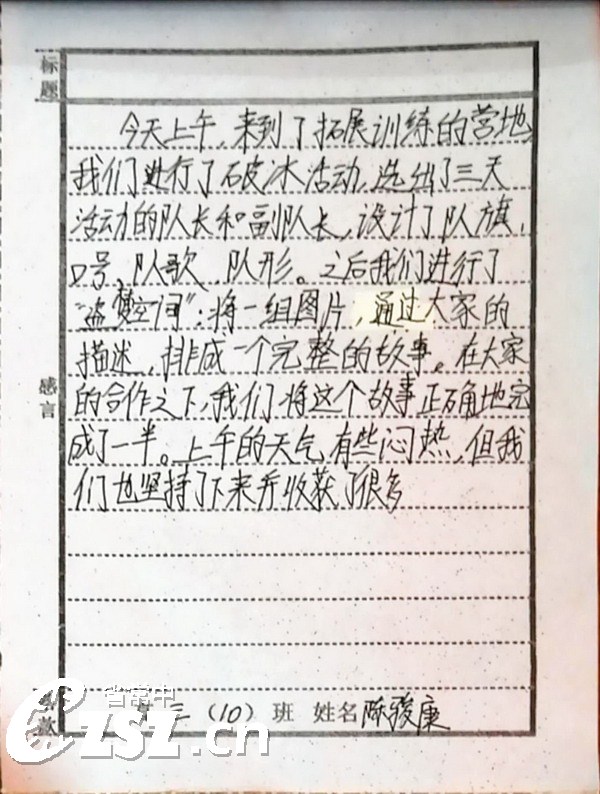 标题
今天上午，来到了拓展训练的营地，
我们进行了破冰活动，选出了三天
活动的队长和副队长，设计了队旗，
口号，队歌，队形。之后我们进行了
"盗梦空间"：将一组图片，通过大家的
描述，排成一个完整的故事。在大家
的合作之下，我们将这个故事正确地完
成了一半。上午的天气有些闷热，但我
们也坚持了下来并收获了很多
感言
省常中
czsz.cn
三（10）班 姓名 陈骏康